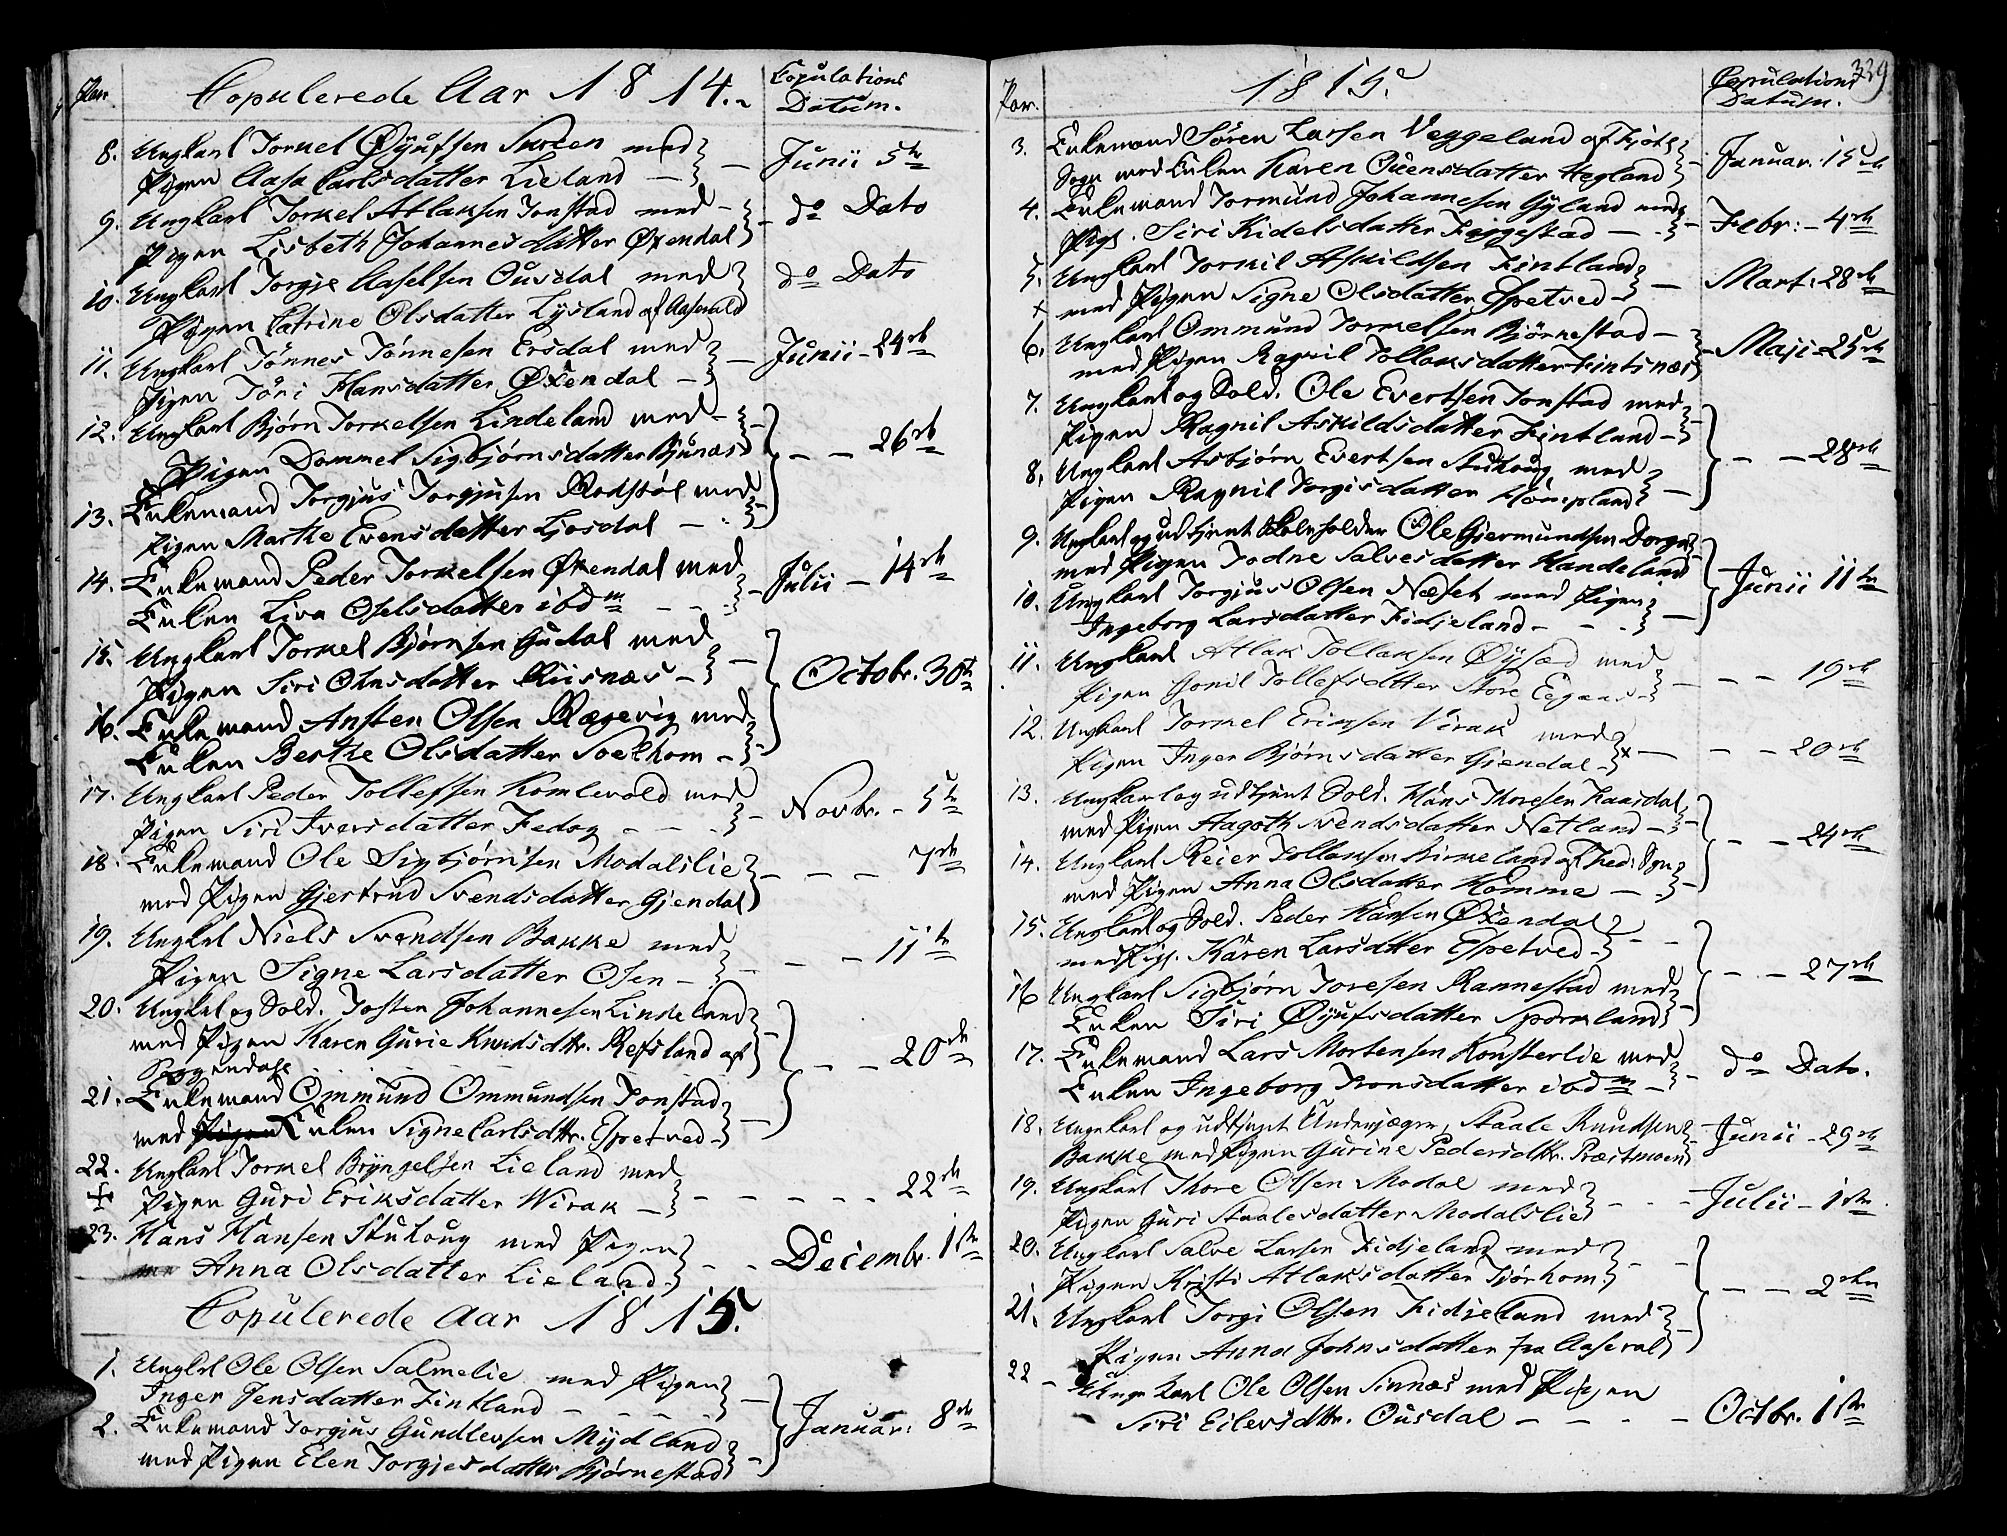 Par.
Copulerede Aar 1814.
Copulations Datum.
8. Ungkarl Torkel Øyufsen med
Pigen Aasa Carlsdatter Lieland — Junii 5te
9. Ungkarl Torkel Atlaksen Tonstad med
Pigen Lisbeth Johannesdatter Øxendal — do Dato
10. Ungkarl Torgje Aaselsen Ousdal med
Pigen Catrine Olsdatter Lysland af Aaserald — do Dato
11. Ungkarl Tønnes Tønnesen Ersdal med
Pigen Tóri Hansdatter Øxendal — Junii — 24de
12. Ungkarl Bjørn Torkelsen Lindeland med
Pigen Dommel Sigbjørnsdatter Bjunes
13. Enkemand Torgjus Torgjusen Rodstøl med
Pigen Marthe Evensdatter Ljosdal — — 26de
14. Enkemand Peder Torkelsen Øxendal med
Enken Liva Oselsdatter ibdm — Julii — 14de
15. Ungkarl Torkel Bjørnsen Gudal med
Pigen Siri Ohnsdatter Risnæs
16. Enkemand Ansten Olsen Rægevig med
Enken Berthe Olsdatter Soelhom — Octobr. 30te
17. Ungkarl Peder Tollefsen Komlevold med
Pigen Siri Iversdatter Fedog — Novbr. — 5te
18. Enkemand Ole Sigbjørnsen Modalslie
med Pigen Gjertrud Svendsdatter Gjendal — — — 7de
19. Ungkl Niels Svendsen Bakke med
Pigen Signe Larsdatter Osen — — 11te
20. Ungkl og Sold. Josten Johannesen Lindeland
med Pigen Karen Gurie Knudsdtr. Refsland af
Sogendahl
21. Enkemand Ommund Ommundsen Tonstad
med Enken Signe Carlsdtr. Espetved — — 20de
22. Ungkarl Torkel Bryngelsen Lieland med
Pigen Guri Eriksdatter Wirak — — — — 22de
23. Hans Hansen Stukoug med Pigen
Anna Olsdatter Lieland — Decembr. 1ste
Copulerede Aar 1815.
1. Ungkl Ole Olsen Salmelie med Pigen
Inger Jensdatter Fintland
2. Enkemand Torgjus Gundlevsen Mydland
med Pigen Elen Torgjesdatter Bjørnestad — Januar: 8de
Par.
1815.
Copulations Datum.
339
3. Enkemand Søren Larsen Veggeland af
Sogn med Enken Karen Ouensdatter Hegland — Januar. 15de
4. Enkemand Tormund Johannesen Gyland med
Pige. Siri Kidelsdatter Figgestad — Febr: — 4de
5. Ungkarl Torkil Askildsen Fintland
× med Pigen Signe Olsdatter Espetved — Mart: 28de
6. Ungkarl Ommund Torkelsen Bjørnestad
med Pigen Ragnil Tollaksdatter Fintsnæs — Maji — 25de
7. Ungkarl og Sold. Ole Evertsen Tonstad med
Pigen Ragnil Askildsdatter Fintland
8. Ungkarl Asbjørn Evertsen Stukoug med
Pigen Ragnil Torgisdatter Hompland — — 28de
9. Ungkarl og udtjent Skoleholder Ole Gjermundsen Dorges
med Pigen Todne Salvesdatter Handeland
10. Ungkarl Torgjus Olsen Næset med Pigen
Ingeborg Larsdatter Fidjeland — Junii 11te
11. Ungkarl Atlak Tollaksen Øysæd med
Pigen Gonil Tollefsdtter Store Eegaas — — — 19de
12. Ungkarl Torkel Eriksen Virak med
Pigen Inger Bjørnsdatter Gjendal × — — — 20de
13. Ungkarl og udtjent Sold. Hans Thoresen Haasdal
med Pigen Aagoth Svendsdatter Netland
14. Ungkarl Reier Tollaksen Birkeland af Fed: Sgn
med Pigen Anna Olsdatter Homme — — 24de
15. Ungkarl og Sold. Peder Hansen Øxendal
med Pige. Karen Larsdtter Espetved
16 Ungkarl Sigbjørn Toresen Rannestad med
Enken Siri Øyufsdatter Sporkland — — 27de
17. Enkemand Lars Mortensen Konsterlie med
Enken Ingeborg Tronsdatter ibdm — do Dato.
18. Ungkarl og udtjent Underjæger, Staale Knudsen
Bakke med Pigen Gurine Pedersdtr. Præstmoen — Junii — 29de
19. Ungkarl Thore Olsen Modal med
Pigen Guri Staalesdatter Modalslie — Julii — 1ste
20. Ungkarl Salve Larsen Fidjeland med
Pigen Kristi Atlaksdatter Tjørhom
21. Ungkarl Torgi Olsen Fidjeland med
Pigen Anna Johnsdatter fra Aaseral — — 2den
22 — Ungekarl Ole Olsen Sinnæs med Pigen
Siri Eilersdtr. Ousdal — — — — Octbr. 1ste